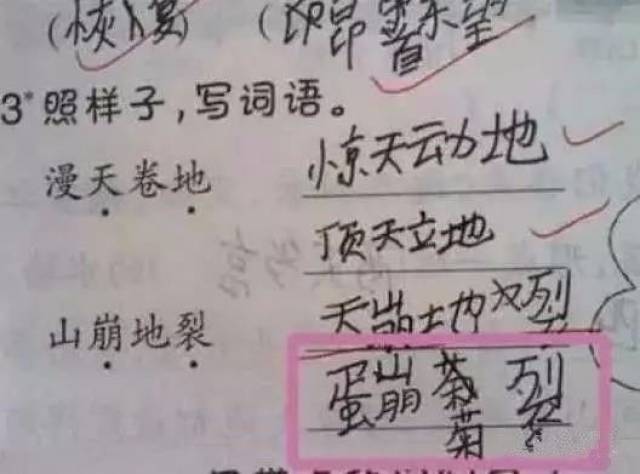 (恢复)
3*照样子,写词语。
漫天卷地 惊天动地
顶天立地
山崩地裂 天崩地裂
蛋崩菊裂